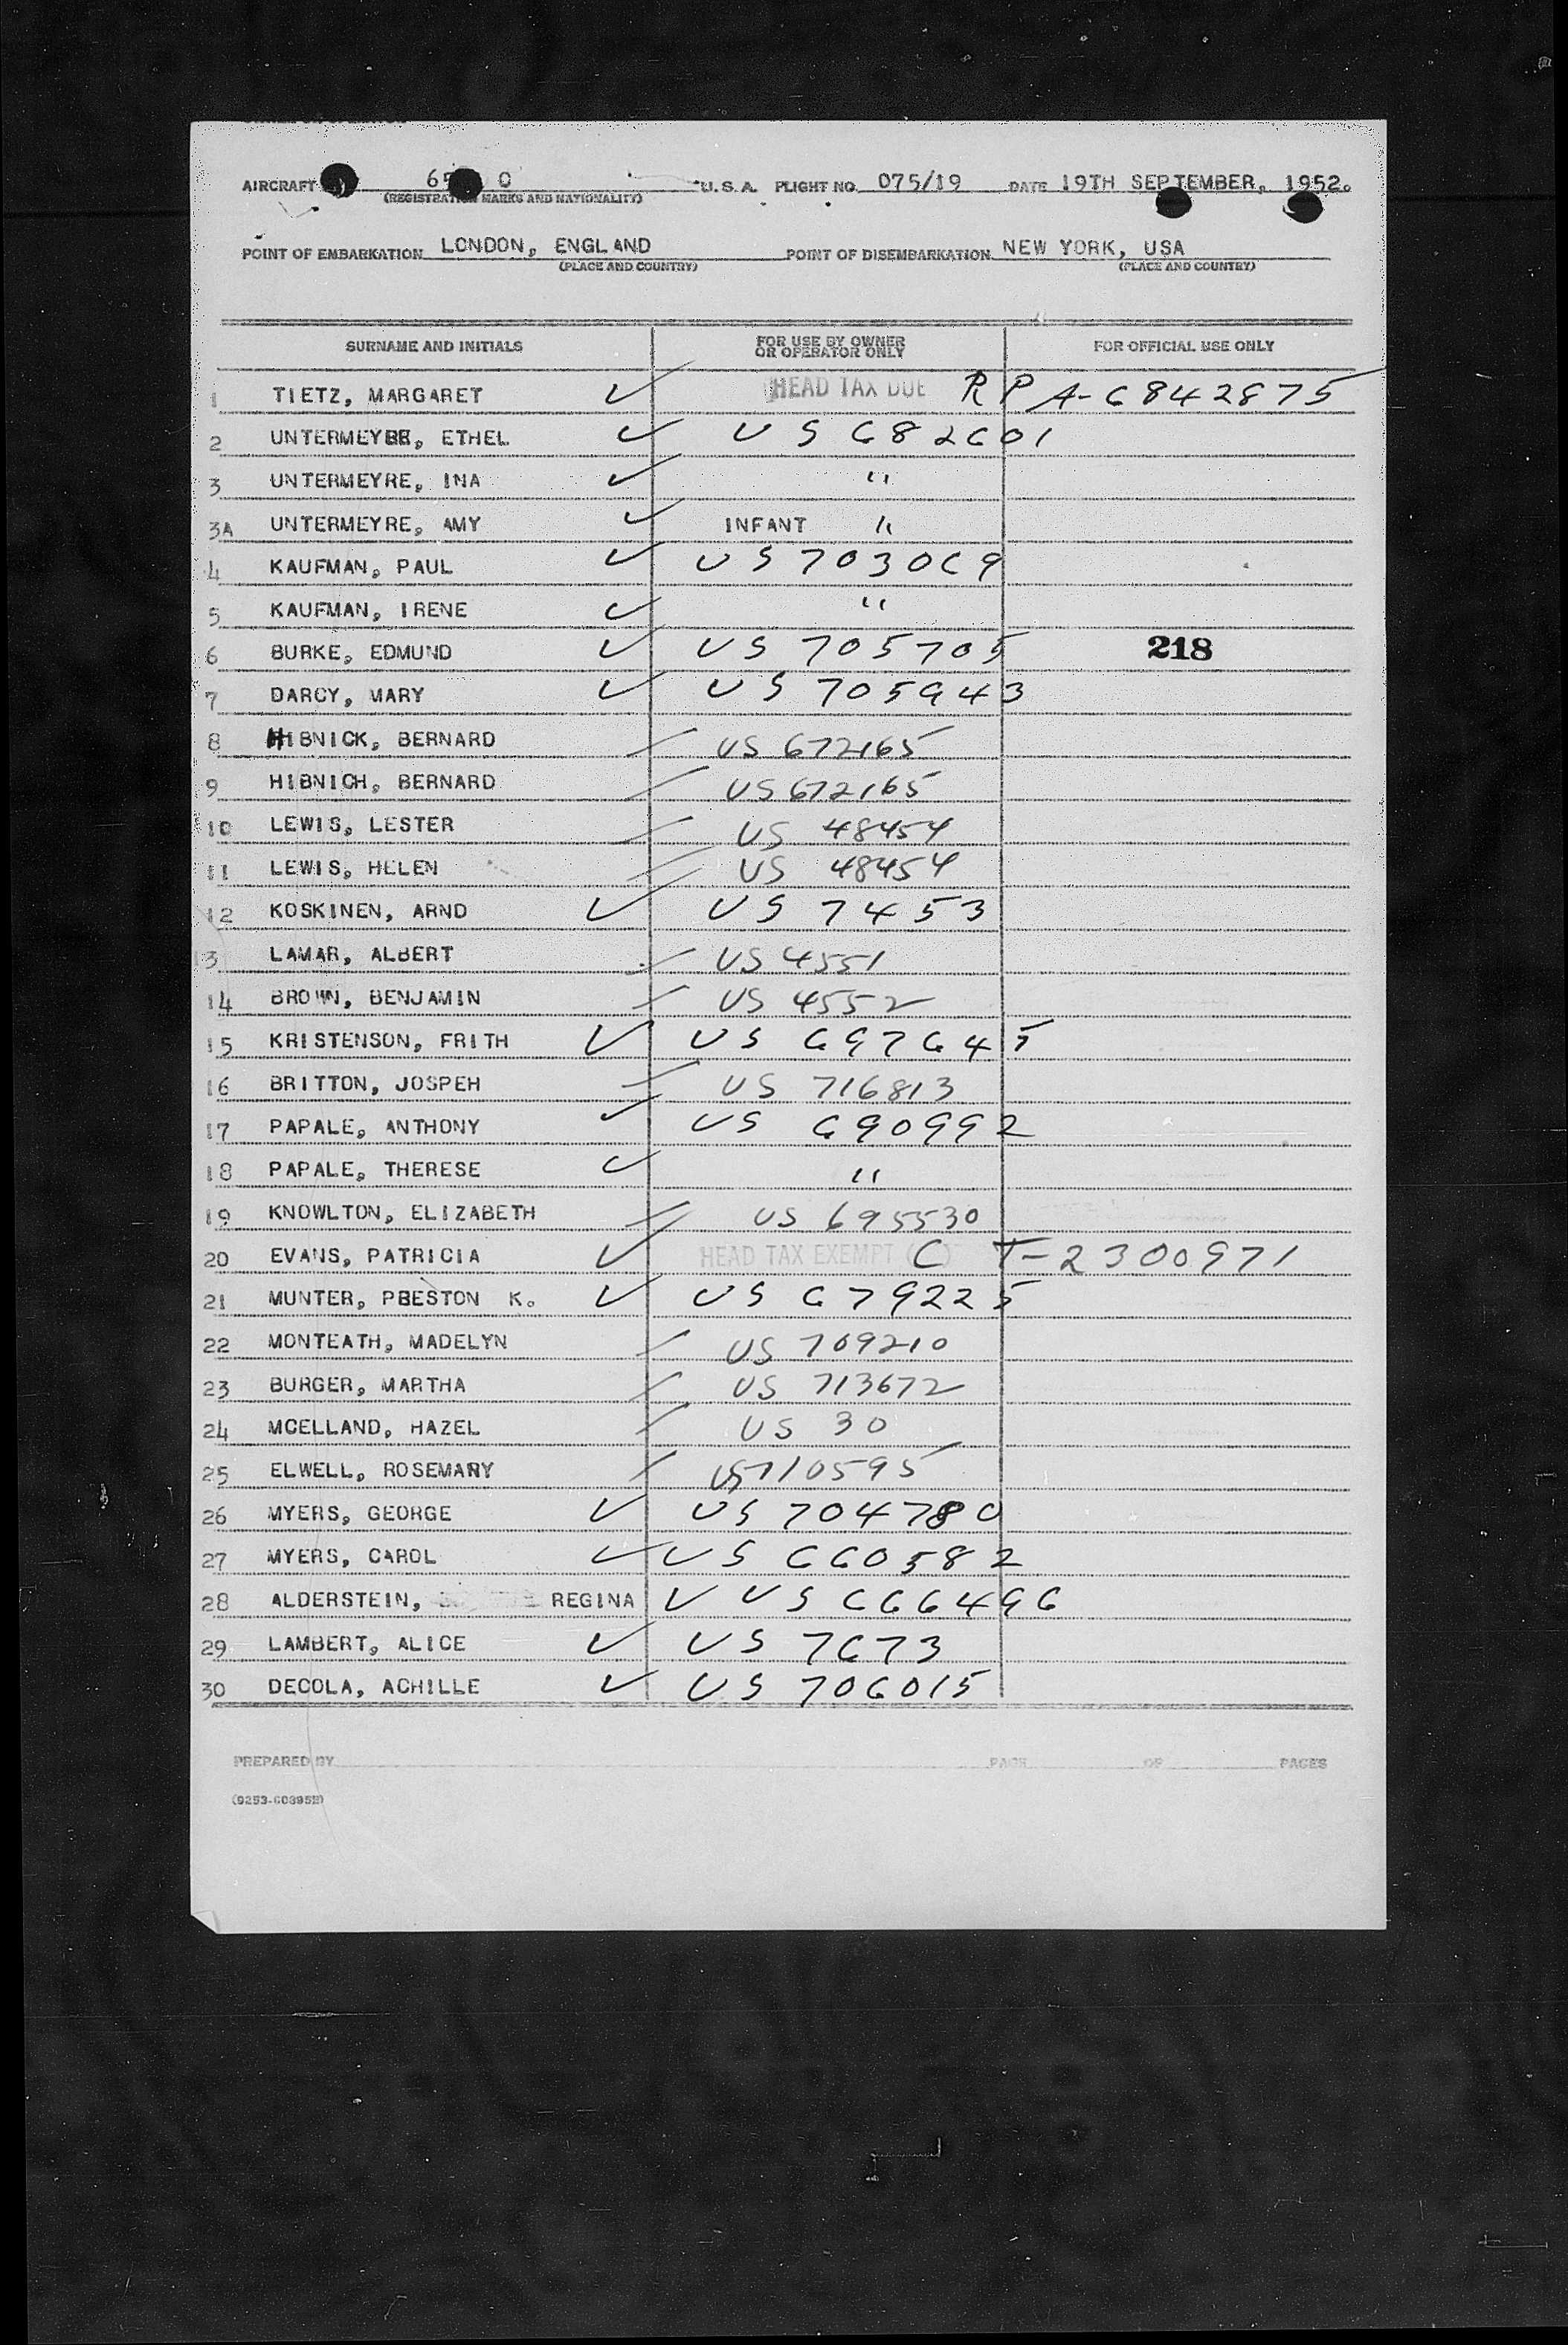 AIRCRAFT 65 0 U.S.A. FLIGHT NO. 075/19 DATE 19TH SEPTEMBER, 1952.
(REGISTRATION MARKS AND NATIONALITY)
POINT OF EMBARKATION LONDON, ENGLAND POINT OF DISEMBARKATION NEW YORK, USA
(PLACE AND COUNTRY) (PLACE AND COUNTRY)
SURNAME AND INITIALS FOR USE BY OWNER OR OPERATOR ONLY FOR OFFICIAL USE ONLY
1 TIETZ, MARGARET ✓ HEAD TAX DUE R P A-6842875
2 UNTERMEYRE, ETHEL ✓ US 682601
3 UNTERMEYRE, INA ✓ "
3A UNTERMEYRE, AMY ✓ INFANT "
4 KAUFMAN, PAUL ✓ US 703069
5 KAUFMAN, IRENE ✓ "
6 BURKE, EDMUND ✓ US 705705 218
7 DARCY, MARY ✓ US 705943
8 HIBNICK, BERNARD US 672165
9 HIBNICH, BERNARD US 672165
10 LEWIS, LESTER US 48454
11 LEWIS, HELEN US 48454
12 KOSKINEN, ARND ✓ US 7453
13 LAMAR, ALBERT US 4551
14 BROWN, BENJAMIN US 4552
15 KRISTENSON, FRITH ✓ US 697645
16 BRITTON, JOSPEH US 716813
17 PAPALE, ANTHONY ✓ US 690992
18 PAPALE, THERESE ✓ "
19 KNOWLTON, ELIZABETH US 695530
20 EVANS, PATRICIA ✓ HEAD TAX EXEMPT (C) T-2300971
21 MUNTER, PBESTON K. ✓ US 679225
22 MONTEATH, MADELYN US 709210
23 BURGER, MARTHA US 713672
24 MCELLAND, HAZEL US 30
25 ELWELL, ROSEMARY US 710595
26 MYERS, GEORGE ✓ US 704780
27 MYERS, CAROL ✓ US 660582
28 ALDERSTEIN, REGINA ✓ US 666496
29 LAMBERT, ALICE ✓ US 7673
30 DECOLA, ACHILLE ✓ US 706015
PREPARED BY PAGE OF PAGES